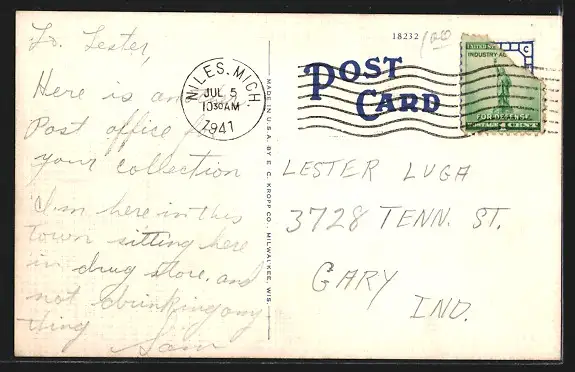 18232
To. Lester,
Here is an
Post office
your collection
I'm here in this
town sitting here
in drug store, and
not drinking any
thing
Sam
NILES. MICH.
JUL 5
1030AM
1941
MADE IN U.S.A. BY E. C. KROPP CO., MILWAUKEE, WIS.
POST
CARD
UNITED ST
INDUSTRY A
FOR DEFENSE
1 CENT
C
LESTER LUGA
3728 TENN. ST.
GARY
IND.